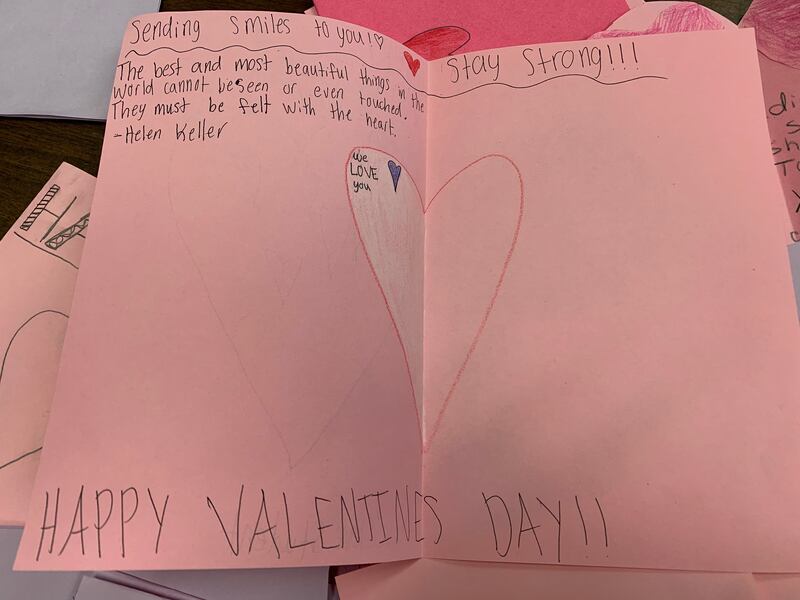 Sending Smiles to you!♡
Stay Strong!!!
The best and most beautiful things in the
world cannot be seen or even touched.
They must be felt with the heart.
-Helen Keller
we
LOVE
you
HAPPY VALENTINES DAY!!